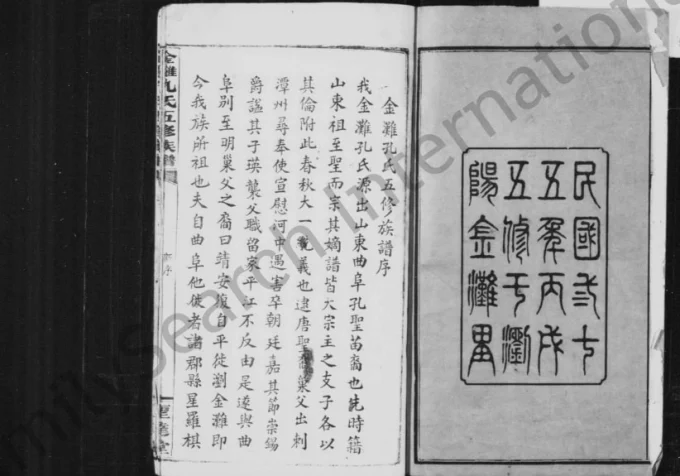 民國式十
五年丙戌
五修于瀏
陽金灘里
金灘孔氏五修族譜序
我金灘孔氏源出山東曲阜孔聖苗裔也先時籍
山東祖至聖而宗其嫡譜皆大宗主之支子各以
其倫附此春秋大一統義也逮唐聖 巢父出刺
潭州尋奉使宣慰河中遇害卒朝廷嘉其節崇錫
爵諡其子瑛襲父職留家平江不反由是遠與曲
阜別至明巢父之裔曰靖安復自平徙瀏金灘即
今我族所祖也夫自曲阜他徙者諸郡縣星羅棋
金灘孔氏五修族譜
序
FamilySearch International